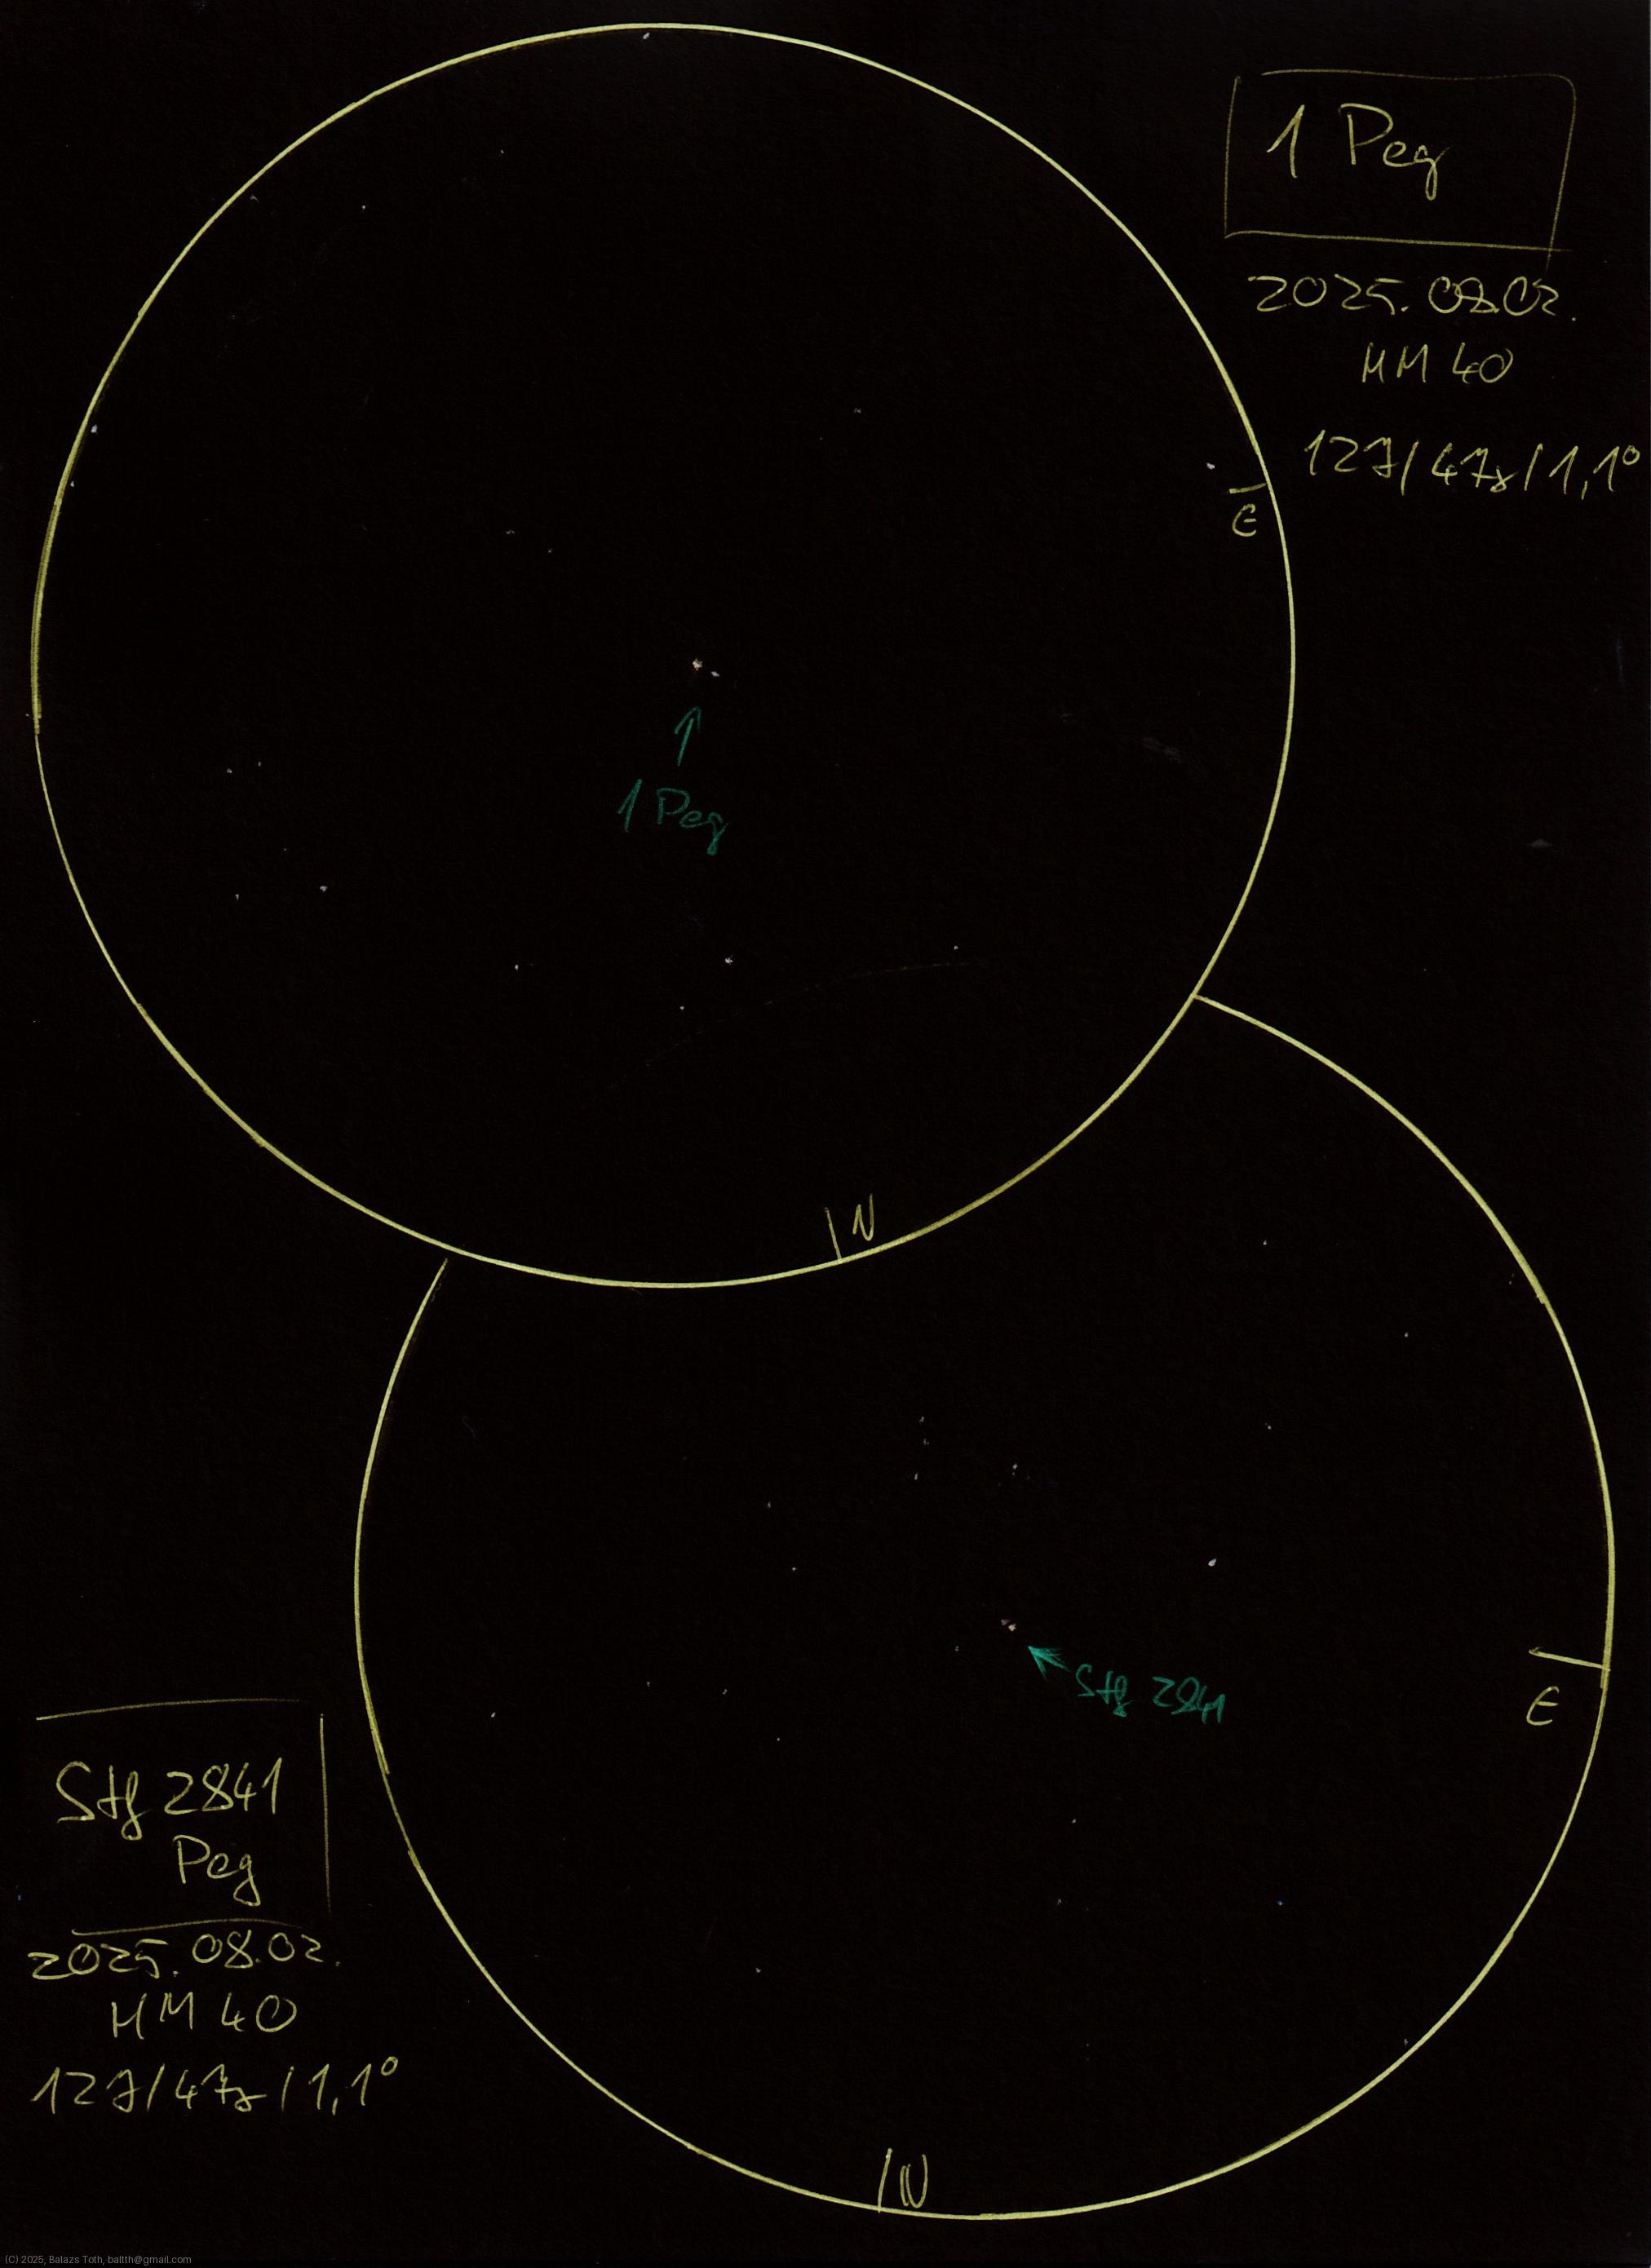 1 Peg
2025.08.02.
HM 40
127/47x/1,1°
E
1 Peg
N
Stf 2841
E
Stf 2841
Peg
2025.08.02.
HM 40
127/47x/1,1°
N
(C) 2025, Balazs Toth, baltth@gmail.com